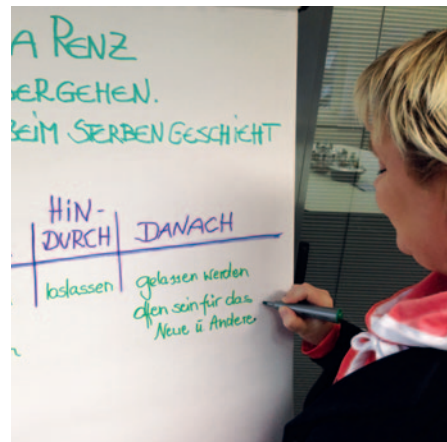 A RENZ
ERGEHEN.
BEIM STERBEN GESCHIEHT
HIN-
DURCH
DANACH
loslassen
gelassen werden
offen sein für das
Neue ü Andere
n